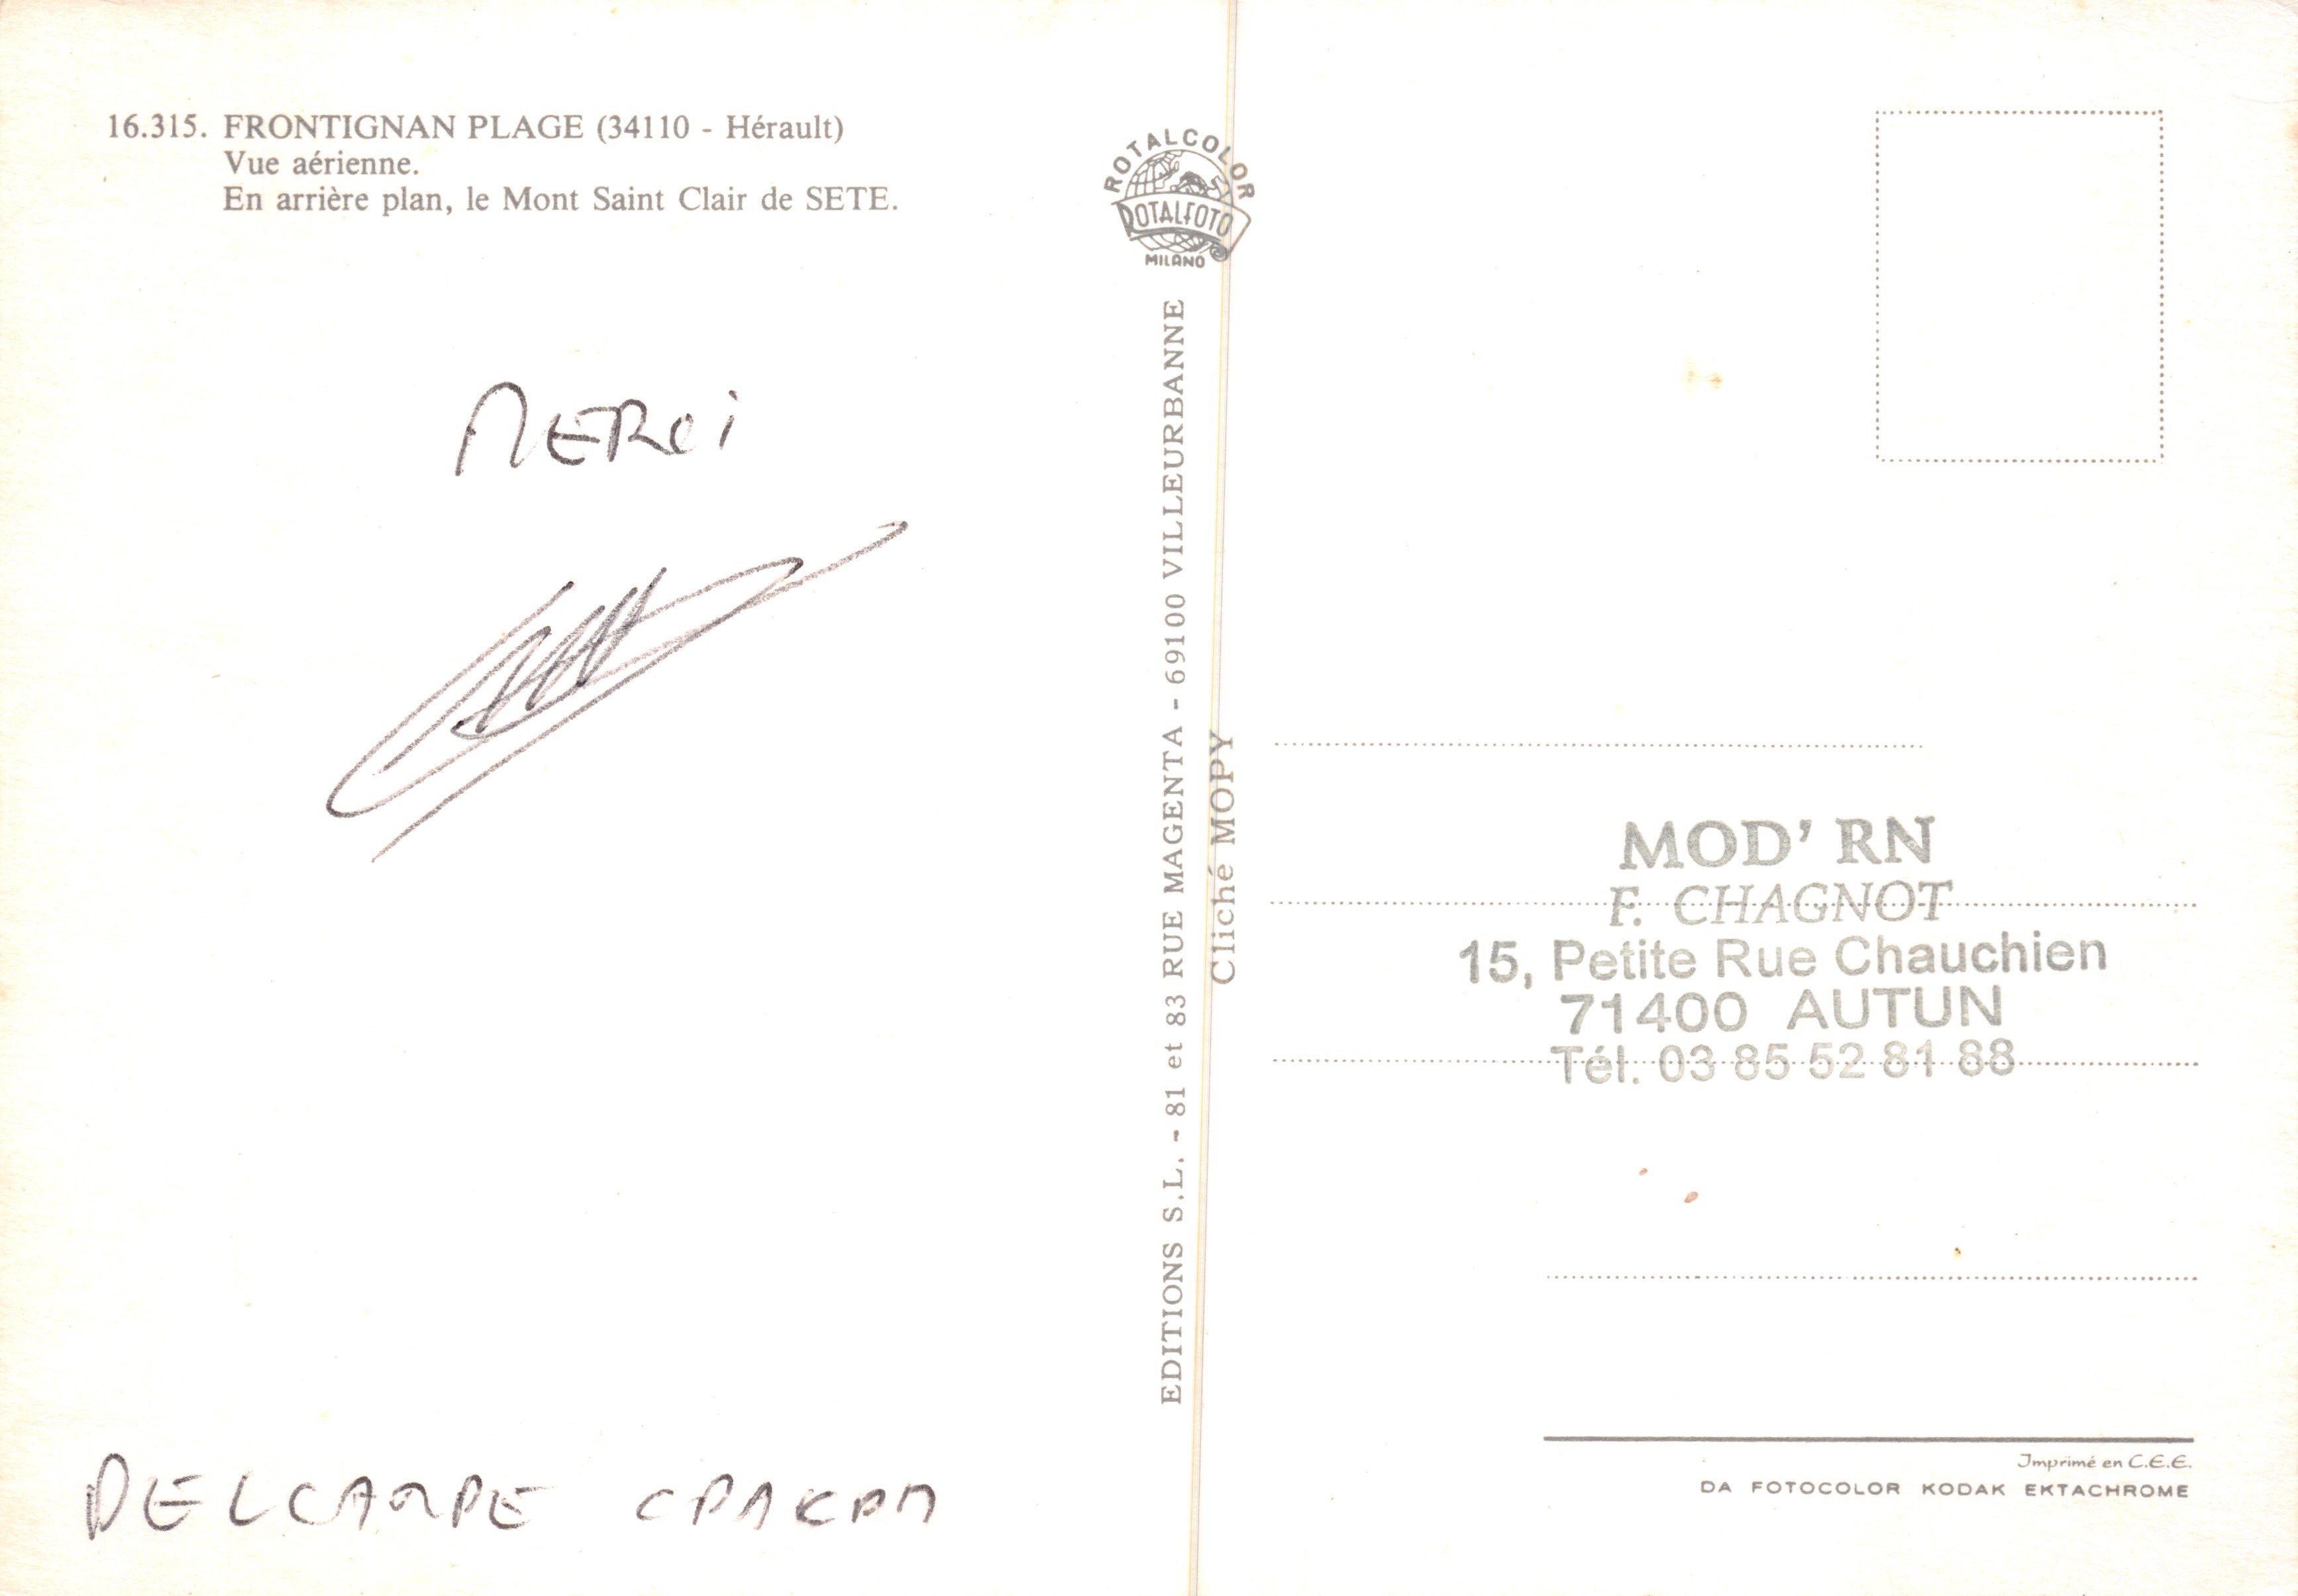 16.315. FRONTIGNAN PLAGE (34110 - Hérault)
Vue aérienne.
En arrière plan, le Mont Saint Clair de SETE.
MERCi
DELCARPE CPAKPM
ROTALCOLOR
ROTALFOTO
MILANO
EDITIONS S.L. - 81 et 83 RUE MAGENTA - 69100 VILLEURBANNE
Cliché MOPY
MOD' RN
F. CHAGNOT
15, Petite Rue Chauchien
71400 AUTUN
Tél. 03 85 52 81 88
Imprimé en C.E.E.
DA FOTOCOLOR KODAK EKTACHROME